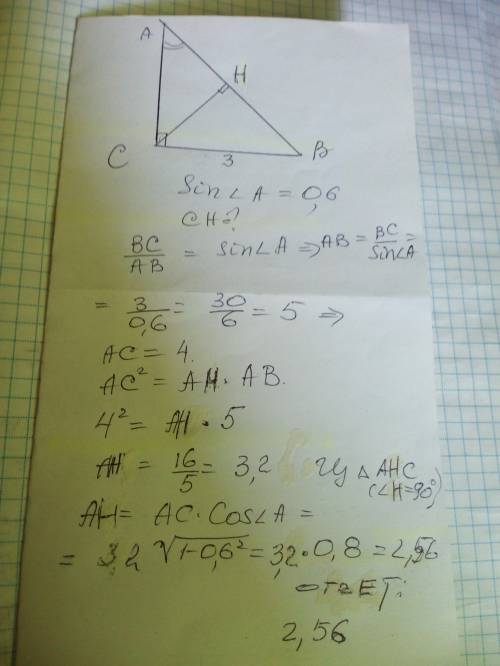 A
H
C
B
3
Sin∠A = 0,6
CH?
BC/AB = sin∠A ⇒ AB = BC/Sin∠A =
= 3/0,6 = 30/6 = 5 ⇒
AC = 4.
AC² = AH · AB.
4² = AH · 5
AH = 16/5 = 3,2 Из △ AHC
(∠H=90°)
AH = AC · Cos∠A =
= 3,2 √1-0,6² = 3,2 · 0,8 = 2,56
ответ:
2,56